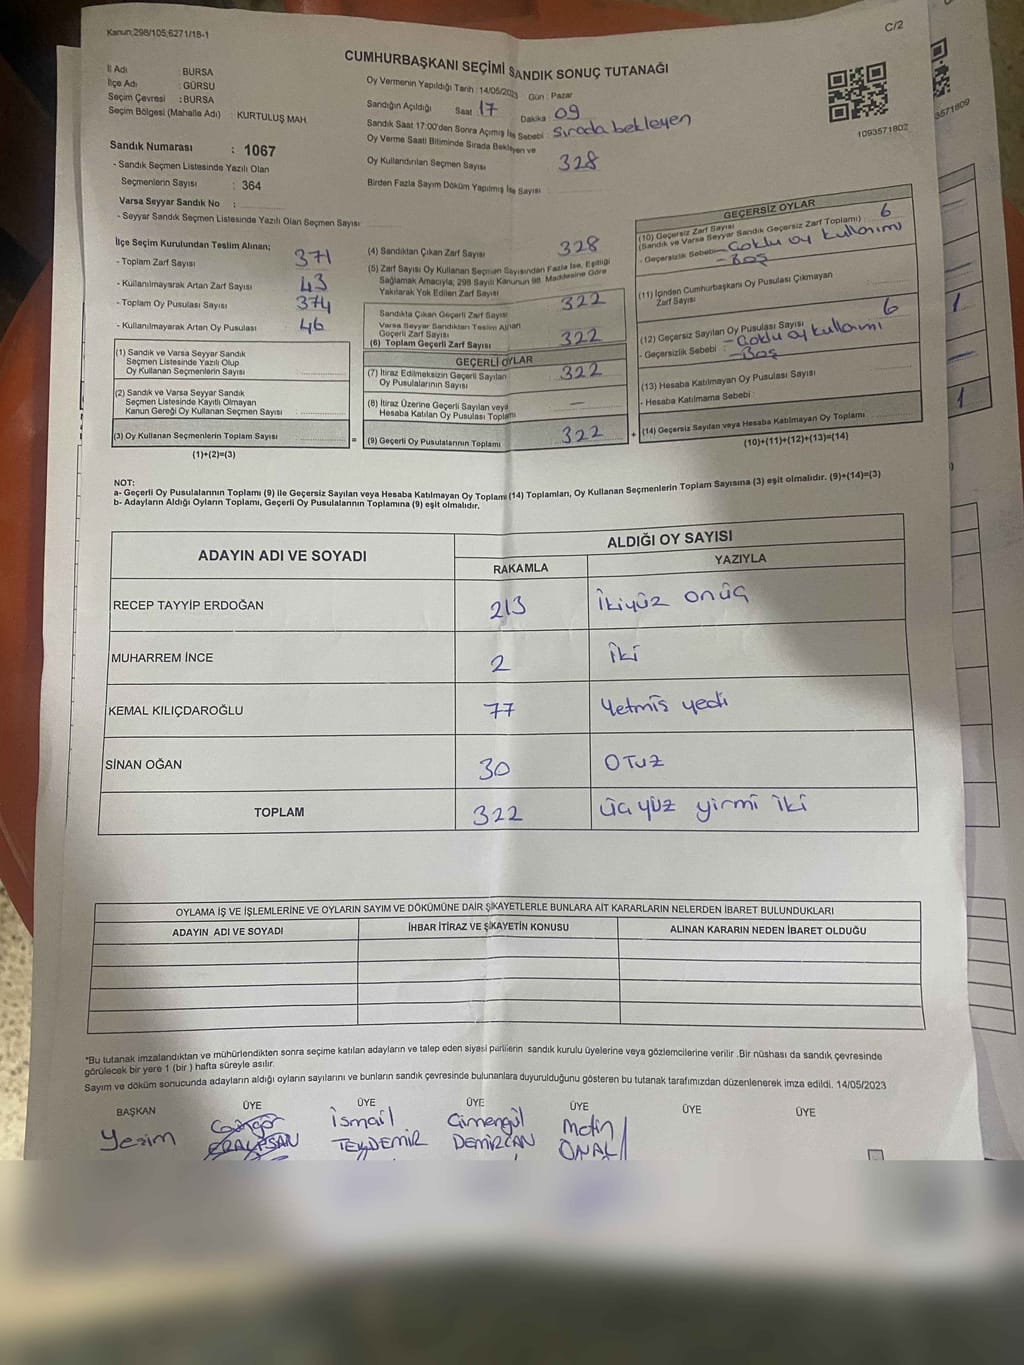 Kanun;298/105;6271/18-1
C/2
CUMHURBAŞKANI SEÇİMİ SANDIK SONUÇ TUTANAĞI
İl Adı : BURSA
İlçe Adı : GÜRSU
Seçim Çevresi : BURSA
Seçim Bölgesi (Mahalle Adı) : KURTULUŞ MAH.
Oy Vermenin Yapıldığı Tarih : 14/05/2023 Gün : Pazar
Sandığın Açıldığı Saat : 17 Dakika : 09
Sandık Saat 17:00'den Sonra Açılmış İse Sebebi : Sırada bekleyen
Oy Verme Saati Bitiminde Sırada Bekleyen ve
Oy Kullandırılan Seçmen Sayısı 328
Birden Fazla Sayım Döküm Yapılmış İse Sayısı
1093571802
3571809
Sandık Numarası : 1067
- Sandık Seçmen Listesinde Yazılı Olan
Seçmenlerin Sayısı : 364
Varsa Seyyar Sandık No :
- Seyyar Sandık Seçmen Listesinde Yazılı Olan Seçmen Sayısı
İlçe Seçim Kurulundan Teslim Alınan;
- Toplam Zarf Sayısı 371
- Kullanılmayarak Artan Zarf Sayısı 43
- Toplam Oy Pusulası Sayısı 374
- Kullanılmayarak Artan Oy Pusulası 46
(1) Sandık ve Varsa Seyyar Sandık
Seçmen Listesinde Yazılı Olup
Oy Kullanan Seçmenlerin Sayısı
(2) Sandık ve Varsa Seyyar Sandık
Seçmen Listesinde Kayıtlı Olmayan
Kanun Gereği Oy Kullanan Seçmen Sayısı
(3) Oy Kullanan Seçmenlerin Toplam Sayısı
(1)+(2)=(3)
=
(4) Sandıktan Çıkan Zarf Sayısı 328
(5) Zarf Sayısı Oy Kullanan Seçmen Sayısından Fazla İse, Eşitliği
Sağlamak Amacıyla; 298 Sayılı Kanunun 98. Maddesine Göre
Yakılarak Yok Edilen Zarf Sayısı
Sandıkta Çıkan Geçerli Zarf Sayısı 322
Varsa Seyyar Sandıktan Teslim Alınan
Geçerli Zarf Sayısı
(6) Toplam Geçerli Zarf Sayısı 322
GEÇERLİ OYLAR
(7) İtiraz Edilmeksizin Geçerli Sayılan
Oy Pusulalarının Sayısı 322
(8) İtiraz Üzerine Geçerli Sayılan veya
Hesaba Katılan Oy Pusulası Toplamı —
(9) Geçerli Oy Pusulalarının Toplamı 322
+
GEÇERSİZ OYLAR
(10) Geçersiz Zarf Sayısı 6
(Sandık ve Varsa Seyyar Sandık Geçersiz Zarf Toplamı)
- Geçersizlik Sebebi - Çoklu oy kullanımı
- Boş
(11) İçinden Cumhurbaşkanı Oy Pusulası Çıkmayan
Zarf Sayısı
(12) Geçersiz Sayılan Oy Pusulası Sayısı 6
- Geçersizlik Sebebi : - Çoklu oy kullanımı
- Boş
(13) Hesaba Katılmayan Oy Pusulası Sayısı
- Hesaba Katılmama Sebebi :
(14) Geçersiz Sayılan veya Hesaba Katılmayan Oy Toplamı
(10)+(11)+(12)+(13)=(14)
NOT:
a- Geçerli Oy Pusulalarının Toplamı (9) ile Geçersiz Sayılan veya Hesaba Katılmayan Oy Toplamı (14) Toplamları, Oy Kullanan Seçmenlerin Toplam Sayısına (3) eşit olmalıdır. (9)+(14)=(3)
b- Adayların Aldığı Oyların Toplamı, Geçerli Oy Pusulalarının Toplamına (9) eşit olmalıdır.
ADAYIN ADI VE SOYADI
ALDIĞI OY SAYISI
RAKAMLA YAZIYLA
RECEP TAYYİP ERDOĞAN 213 İkiyüz onüç
MUHARREM İNCE 2 İki
KEMAL KILIÇDAROĞLU 77 Yetmiş yedi
SİNAN OĞAN 30 OTUZ
TOPLAM 322 Üçyüz yirmi iki
OYLAMA İŞ VE İŞLEMLERİNE VE OYLARIN SAYIM VE DÖKÜMÜNE DAİR ŞİKAYETLERLE BUNLARA AİT KARARLARIN NELERDEN İBARET BULUNDUKLARI
ADAYIN ADI VE SOYADI İHBAR İTİRAZ VE ŞİKAYETİN KONUSU ALINAN KARARIN NEDEN İBARET OLDUĞU
*Bu tutanak imzalandıktan ve mühürlendikten sonra seçime katılan adayların ve talep eden siyasi partilerin sandık kurulu üyelerine veya gözlemcilerine verilir .Bir nüshası da sandık çevresinde
görülecek bir yere 1 (bir ) hafta süreyle asılır.
Sayım ve döküm sonucunda adayların aldığı oyların sayılarını ve bunların sandık çevresinde bulunanlara duyurulduğunu gösteren bu tutanak tarafımızdan düzenlenerek imza edildi. 14/05/2023
BAŞKAN ÜYE ÜYE ÜYE ÜYE ÜYE ÜYE
Yesim İsmail Çimengül Metin
TEKDEMİR DEMİRCAN ÖNAL